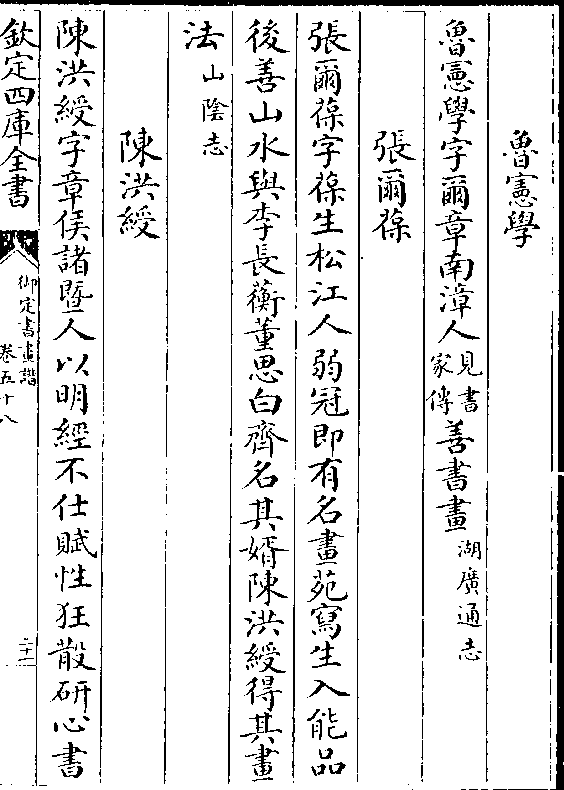 魯憲學
魯憲學字爾章南漳人見書家傳善書畫湖廣通志
張爾葆
張爾葆字葆生松江人弱冠即有名畫苑寫生入能品
後善山水與李長蘅董思白齊名其婿陳洪綬得其畫
法山陰志
陳洪綬
陳洪綬字章侯諸暨人以明經不仕賦性狂散研心書
欽定四庫全書
御定書畫譜
卷五十八
二十一